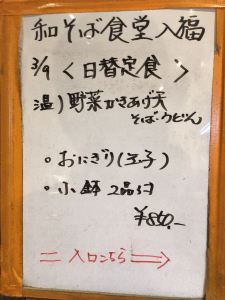 和そば食堂入福
3/9 〈日替定食〉
温)野菜かきあげ天
そば・うどん
◦おにぎり(玉子)
◦小鉢2品付
¥850.-
= 入口こちら ⇒